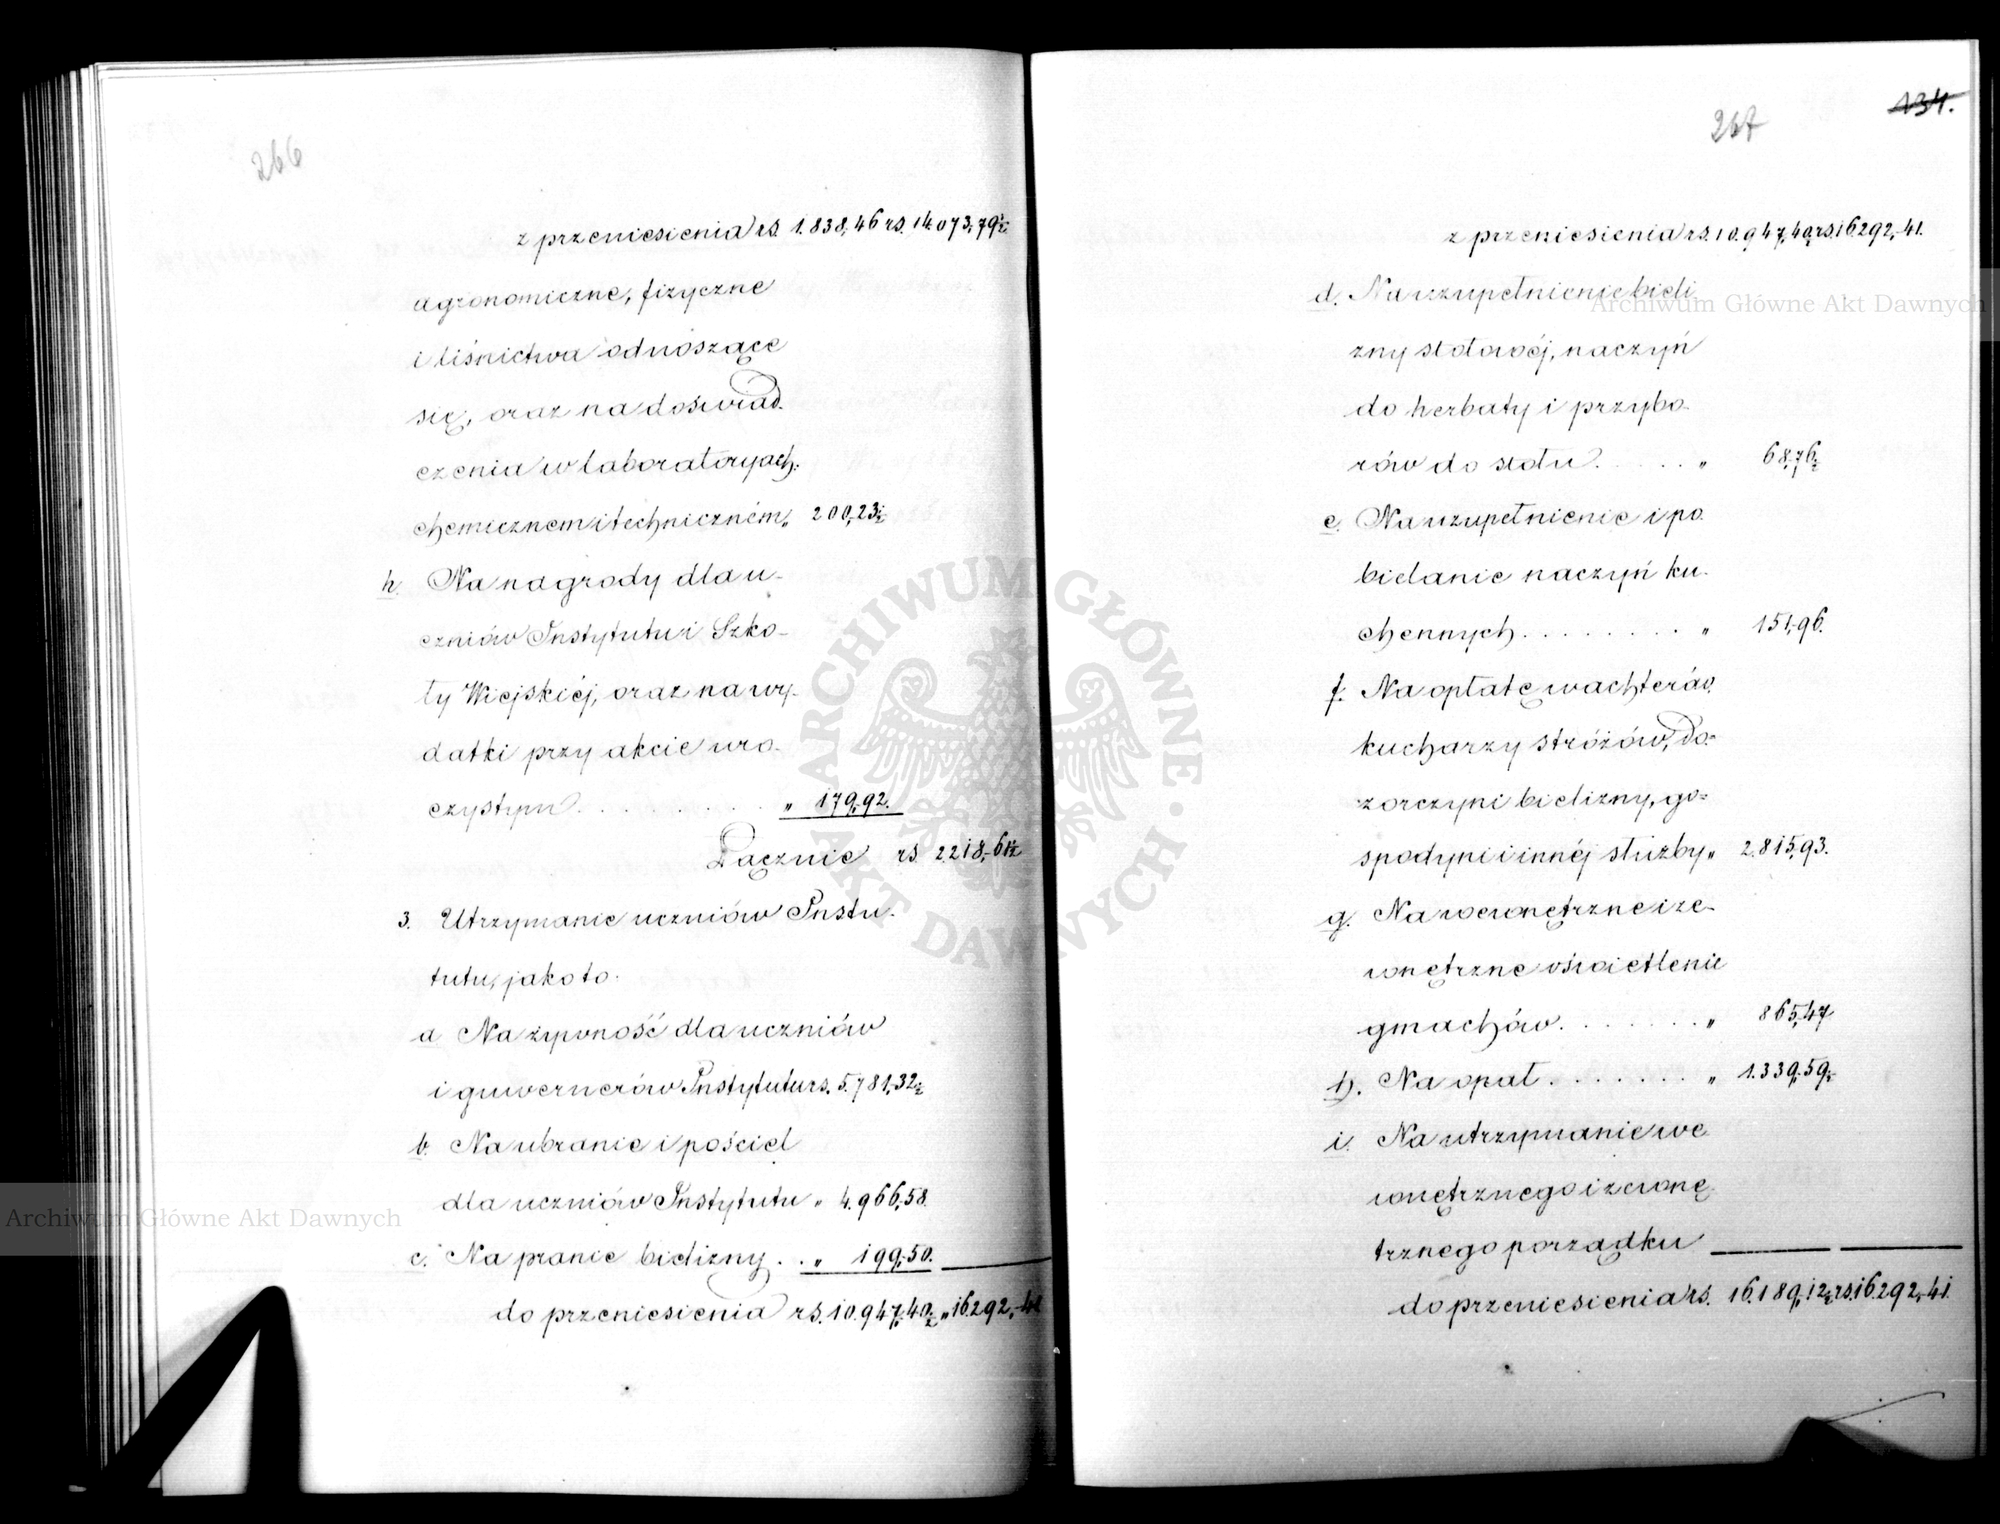 266
z przeniesienia rs. 1.838,46 rs. 14.073,79½
agronomiczne, fizyczne
i liśnictwa odnoszące
się, oraz na doświad.
czenia w laboratoryach.
chemicznem i techniczném „ 200,23½
h. Na nagrody dla u-
czniów Instytutu i Szko-
ły Wiejskiéj, oraz na wy-
datki przy akcie uro-
czystym . . . . . . . . . . „ 179,92.
Łącznie rs 2.218,61½
3. Utrzymanie uczniów Insty-
tutu, jako to.
a Na żywność dla uczniów
i guwernerów Instytutu rs. 5.781,32½
b. Na ubranie i pościel
dla uczniów Instytutu „ 4.966,58.
c. Na pranie bielizny . . „ 199,50.
do przeniesienia rs. 10.947,40½ „ 16.292,41
134.
267
z przeniesienia rs. 10.947,40½ rs. 16.292,41.
d. Na uzupełnienie bieli
zny stołowéj, naczyń
do herbaty i przybo-
rów do stołu . . . . . „ 68,76½
e. Na uzupełnienie i po.
bielanie naczyń ku-
chennych . . . . . . . . . „ 151,96.
f. Na opłatę wachterów.
kucharzy stróżów, do-
zorczyni bielizny, go-
spodyni i innéj służby „ 2.815,93.
g. Na wewnętrzne i ze-
wnętrzne oświetlenie
gmachów . . . . . . . „ 865,47
h. Na opał . . . . . . . „ 1.339,59½
i. Na utrzymanie we
wnętrznego i zewnę.
trznego porządku
do przeniesienia rs. 16.189,12½ rs. 16.292,41.
Archiwum Główne Akt Dawnych
Archiwum Główne Akt Dawnych
ARCHIWUM GŁÓWNE · AKT DAWNYCH ·